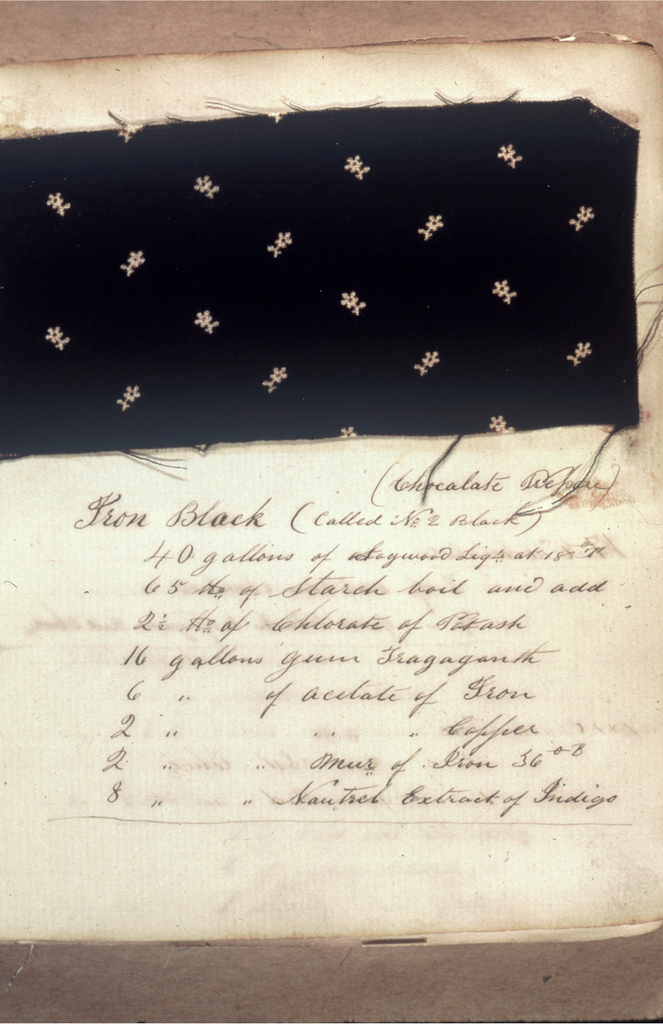 (Chocalate
Iron Black (Called No. 2 Black)
40 gallons of Logwood Liqr. at 18° T
65 lbs of Starch boil and add
2½ lbs of Chlorate of Potash
16 gallons gum Tragaganth
6 " of acetate of Iron
2 " " " Copper
2 " " Mur. of Iron 36° B
8 " " Nautrel Extract of Indigo